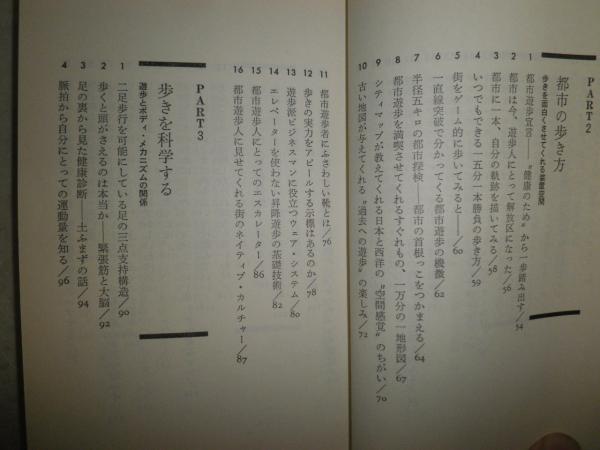 PART2
都市の歩き方
歩きを面白くさせてくれる装置空間
1 都市遊歩宣言——〝健康のため〟から一歩踏み出す/54
2 都市は今、遊歩人にとって解放区になった/56
3 都市に一本、自分の軌跡を描いてみる/58
4 いつでもできる一五分一本勝負の歩き方/59
5 街をゲーム的に歩いてみると——/60
6 一直線突破で分かってくる都市遊歩の機微/62
7 半径五キロの都市探検——都市の首根っこをつかまえる/64
8 都市遊歩を満喫させてくれるすぐれもの、一万分の一地形図/67
9 シティマップが教えてくれる日本と西洋の〝空間感覚〟のちがい/70
10 古い地図が与えてくれる〝過去への遊歩〟の楽しみ/72
11 都市遊歩者にふさわしい靴とは/76
12 歩きの実力をアピールする示標はあるのか/78
13 遊歩派ビジネスマンに役立つウェア・システム/80
14 エレベーターを使わない昇降遊歩の基礎技術/82
15 都市遊歩人にとってのエスカレーター/86
16 都市遊歩人に見せてくれる街のネイティブ・カルチャー/87
PART3
歩きを科学する
遊歩とボディ・メカニズムの関係
1 二足歩行を可能にしている足の三点支持構造/90
2 歩くと頭がさえるのは本当か——緊張筋と大脳/92
3 足の裏から見た健康診断——土ふまずの話/94
4 脈拍から自分にとっての運動量を知る/96